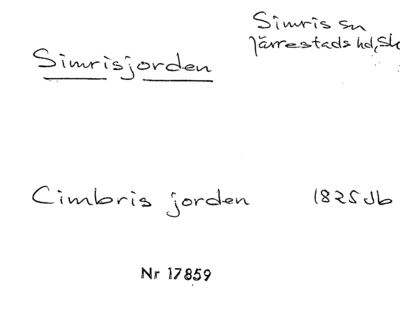 Simris sn
Järrestads hd, Sk
Simrisjorden
Cimbris jorden 1825 Jb
Nr 17859